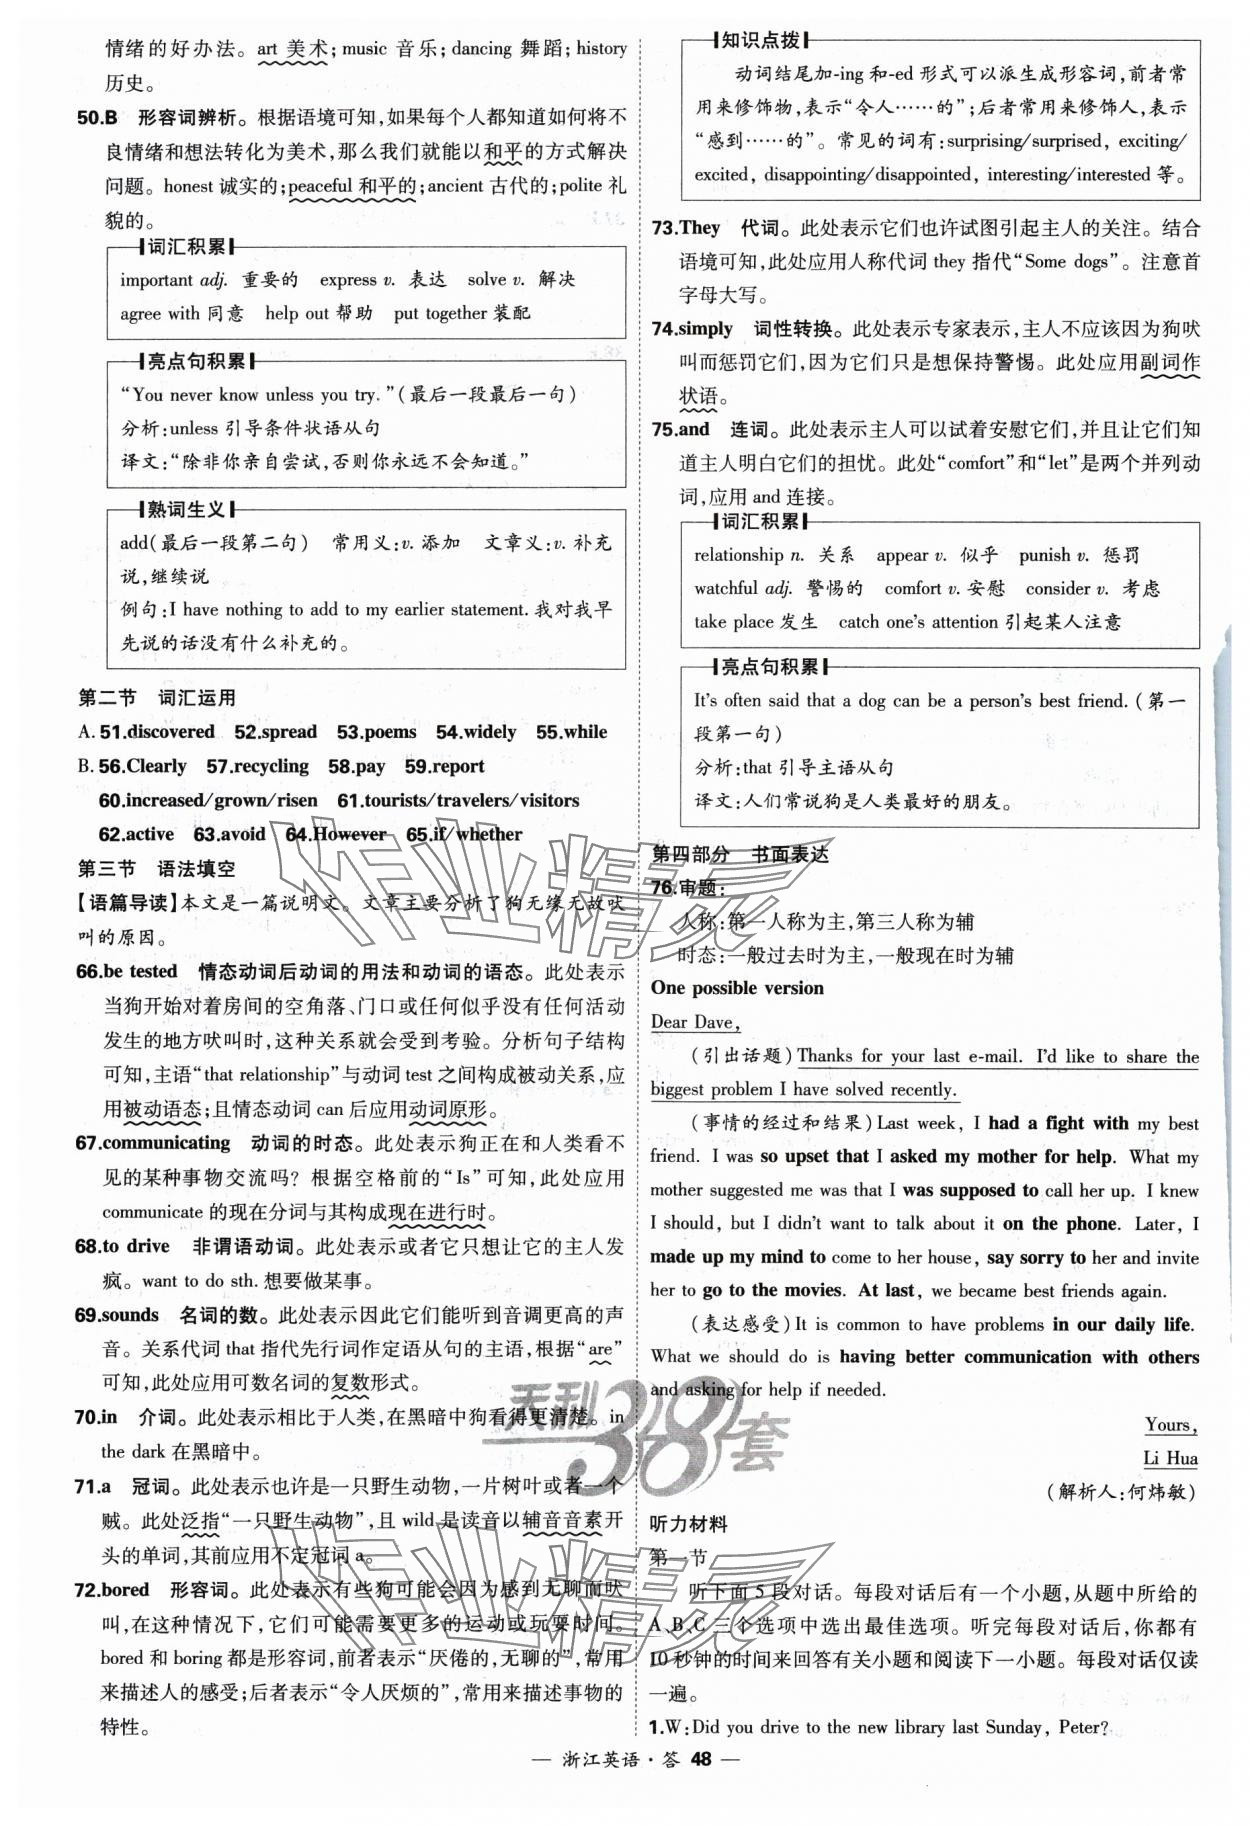 情绪的好办法。art 美术；music 音乐；dancing 舞蹈；history
历史。
50.B 形容词辨析。根据语境可知，如果每个人都知道如何将不
良情绪和想法转化为美术，那么我们就能以和平的方式解决
问题。honest 诚实的；peaceful 和平的；ancient 古代的；polite 礼
貌的。
词汇积累
important adj. 重要的 express v. 表达 solve v. 解决
agree with 同意 help out 帮助 put together 装配
亮点句积累
“You never know unless you try.”（最后一段最后一句）
分析：unless 引导条件状语从句
译文：“除非你亲自尝试，否则你永远不会知道。”
熟词生义
add（最后一段第二句） 常用义：v. 添加 文章义：v. 补充
说，继续说
例句：I have nothing to add to my earlier statement. 我对我早
先说的话没有什么补充的。
第二节 词汇运用
A. 51.discovered 52.spread 53.poems 54.widely 55.while
B. 56.Clearly 57.recycling 58.pay 59.report
60.increased/grown/risen 61.tourists/travelers/visitors
62.active 63.avoid 64.However 65.if/whether
第三节 语法填空
【语篇导读】本文是一篇说明文。文章主要分析了狗无缘无故吠
叫的原因。
66.be tested 情态动词后动词的用法和动词的语态。此处表示
当狗开始对着房间的空角落、门口或任何似乎没有任何活动
发生的地方吠叫时，这种关系就会受到考验。分析句子结构
可知，主语“that relationship”与动词 test 之间构成被动关系，应
用被动语态；且情态动词 can 后应用动词原形。
67.communicating 动词的时态。此处表示狗正在和人类看不
见的某种事物交流吗？根据空格前的“Is”可知，此处应用
communicate 的现在分词与其构成现在进行时。
68.to drive 非谓语动词。此处表示或者它只想让它的主人发
疯。want to do sth. 想要做某事。
69.sounds 名词的数。此处表示因此它们能听到音调更高的声
音。关系代词 that 指代先行词作定语从句的主语，根据“are”
可知，此处应用可数名词的复数形式。
70.in 介词。此处表示相比于人类，在黑暗中狗看得更清楚。in
the dark 在黑暗中。
71.a 冠词。此处表示也许是一只野生动物，一片树叶或者一个
贼。此处泛指“一只野生动物”，且 wild 是读音以辅音音素开
头的单词，其前应用不定冠词 a。
72.bored 形容词。此处表示有些狗可能会因为感到无聊而吠
叫，在这种情况下，它们可能需要更多的运动或玩耍时间。
bored 和 boring 都是形容词，前者表示“厌倦的，无聊的”，常用
来描述人的感受；后者表示“令人厌烦的”，常用来描述事物的
特性。
知识点拨
动词结尾加-ing 和-ed 形式可以派生成形容词，前者常
用来修饰物，表示“令人……的”；后者常用来修饰人，表示
“感到……的”。常见的词有：surprising/surprised，exciting/
excited，disappointing/disappointed，interesting/interested 等。
73.They 代词。此处表示它们也许试图引起主人的关注。结合
语境可知，此处应用人称代词 they 指代“Some dogs”。注意首
字母大写。
74.simply 词性转换。此处表示专家表示，主人不应该因为狗吠
叫而惩罚它们，因为它们只是想保持警惕。此处应用副词作
状语。
75.and 连词。此处表示主人可以试着安慰它们，并且让它们知
道主人明白它们的担忧。此处“comfort”和“let”是两个并列动
词，应用 and 连接。
词汇积累
relationship n. 关系 appear v. 似乎 punish v. 惩罚
watchful adj. 警惕的 comfort v. 安慰 consider v. 考虑
take place 发生 catch one's attention 引起某人注意
亮点句积累
It's often said that a dog can be a person's best friend.（第一
段第一句）
分析：that 引导主语从句
译文：人们常说狗是人类最好的朋友。
第四部分 书面表达
76.审题：
人称：第一人称为主，第三人称为辅
时态：一般过去时为主，一般现在时为辅
One possible version
Dear Dave,
（引出话题）Thanks for your last e-mail. I'd like to share the
biggest problem I have solved recently.
（事情的经过和结果）Last week, I had a fight with my best
friend. I was so upset that I asked my mother for help. What my
mother suggested me was that I was supposed to call her up. I knew
I should, but I didn't want to talk about it on the phone. Later, I
made up my mind to come to her house, say sorry to her and invite
her to go to the movies. At last, we became best friends again.
（表达感受）It is common to have problems in our daily life.
What we should do is having better communication with others
and asking for help if needed.
Yours,
Li Hua
（解析人：何炜敏）
听力材料
第一节
听下面 5 段对话。每段对话后有一个小题，从题中所给的
A、B、C 三个选项中选出最佳选项。听完每段对话后，你都有
10 秒钟的时间来回答有关小题和阅读下一小题。每段对话仅读
一遍。
1.W：Did you drive to the new library last Sunday, Peter?
— 浙江英语·答 48 —
作业精灵
天利38套
作业精灵